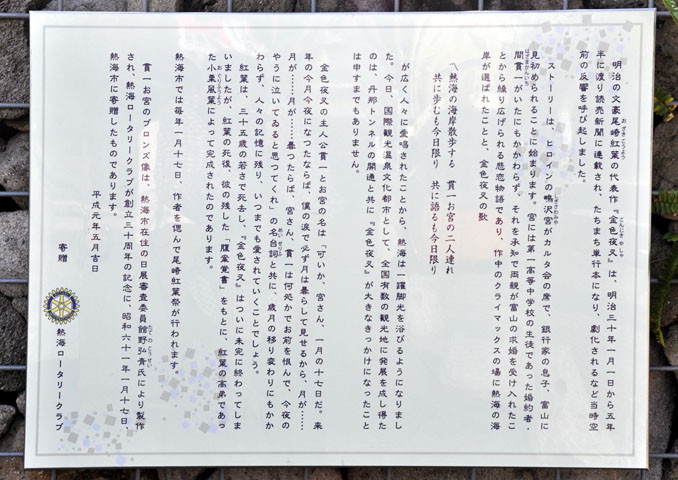 明治の文豪尾崎紅葉の代表作『金色夜叉』は、明治三十年一月一日から五年
半に渡り読売新聞に連載され、たちまち単行本になり、劇化されるなど当時空
前の反響を呼び起しました。
ストーリーは、ヒロインの鴫沢宮がカルタ会の席で、銀行家の息子、富山に
見初められることに始まります。宮には第一高等中学校の生徒であった婚約者・
間貫一がいたにもかかわらず、それを承知で両親が富山の求婚を受け入れたこ
とから繰り広げられる悲恋物語であり、作中のクライマックスの場に熱海の海
岸が選ばれたことと、金色夜叉の歌
〽熱海の海岸散歩する 貫一お宮の二人連れ
共に歩むも今日限り 共に語るも今日限り
が広く人々に愛唱されたことから、熱海は一躍脚光を浴びるようになりまし
た。今日、国際観光温泉文化都市として、全国有数の観光地に発展を成し得た
のは、丹那トンネルの開通と共に『金色夜叉』が大きなきっかけになったこと
は申すまでもありません。
金色夜叉の主人公貫一とお宮の名は「可いか、宮さん、一月の十七日だ。来
年の今月今夜になったならば、僕の涙で必ず月は曇らして見せるから、月が……
月が……月が……曇ったらば、宮さん、貫一は何処かでお前を恨んで、今夜の
やうに泣いてゐると思つてくれ」の名台詞と共に、歳月の移り変わりにもかか
わらず、人々の記憶に残り、いつまでも愛されていくことでしょう。
紅葉は、三十五歳の若さで死去し、『金色夜叉』はついに未完に終わってしま
いましたが、紅葉の死後、彼の残した「腹案覚書」をもとに、紅葉の高弟であっ
た小栗風葉によって完成されたのであります。
熱海市では毎年一月十七日、作者を偲んで尾崎紅葉祭が行われます。
貫一お宮のブロンズ像は、熱海市在住の日展審査委員舘野弘青氏により製作
され、熱海ロータリークラブが創立三十周年の記念に、昭和六十一年一月十七日、
熱海市に寄贈したものであります。
平成元年五月吉日
寄贈
熱海ロータリークラブ